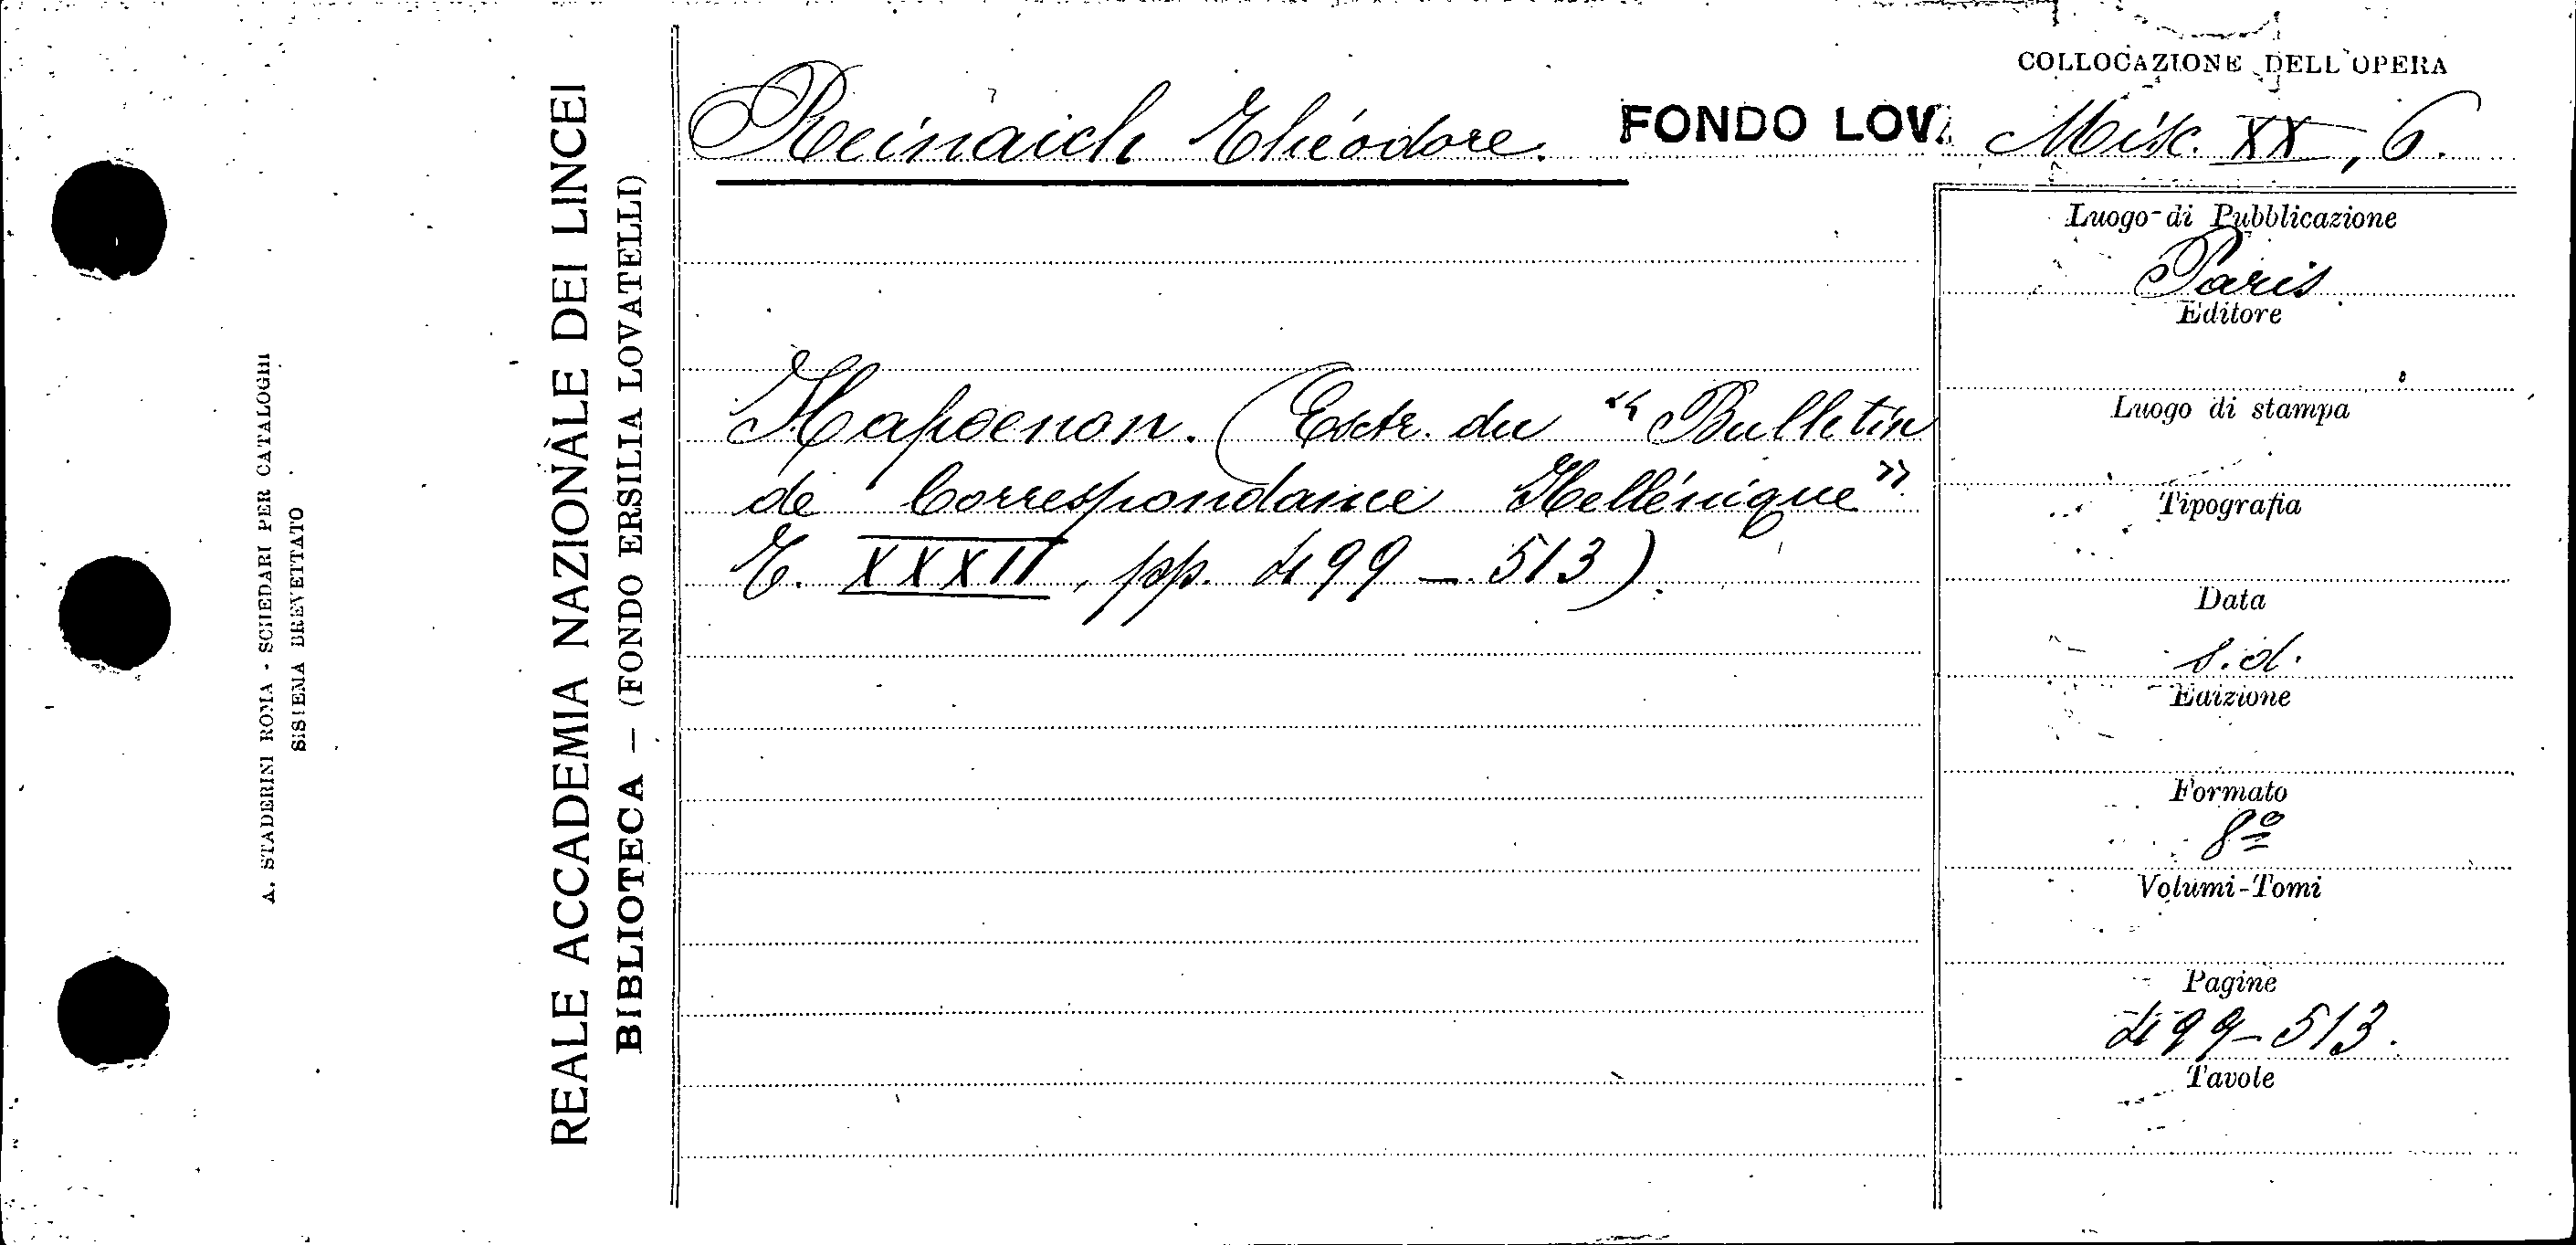 COLLOCAZIONE DELL'OPERA
Reinaich Théodore. FONDO LOV. Misc. XX, 6.
Luogo di Pubblicazione
Paris
Editore
Luogo di stampa
Tipografia
Data
s.d.
Edizione
Formato
8º
Volumi-Tomi
Pagine
499-513.
Tavole
(Extr. du "Bulletin
de Correspondance Hellénique"
T. XXXII, pp. 499-513).
REALE ACCADEMIA NAZIONALE DEI LINCEI
BIBLIOTECA — (FONDO ERSILIA LOVATELLI)
A. STADERINI ROMA - SCHEDARI PER CATALOGHI
SISTEMA BREVETTATO